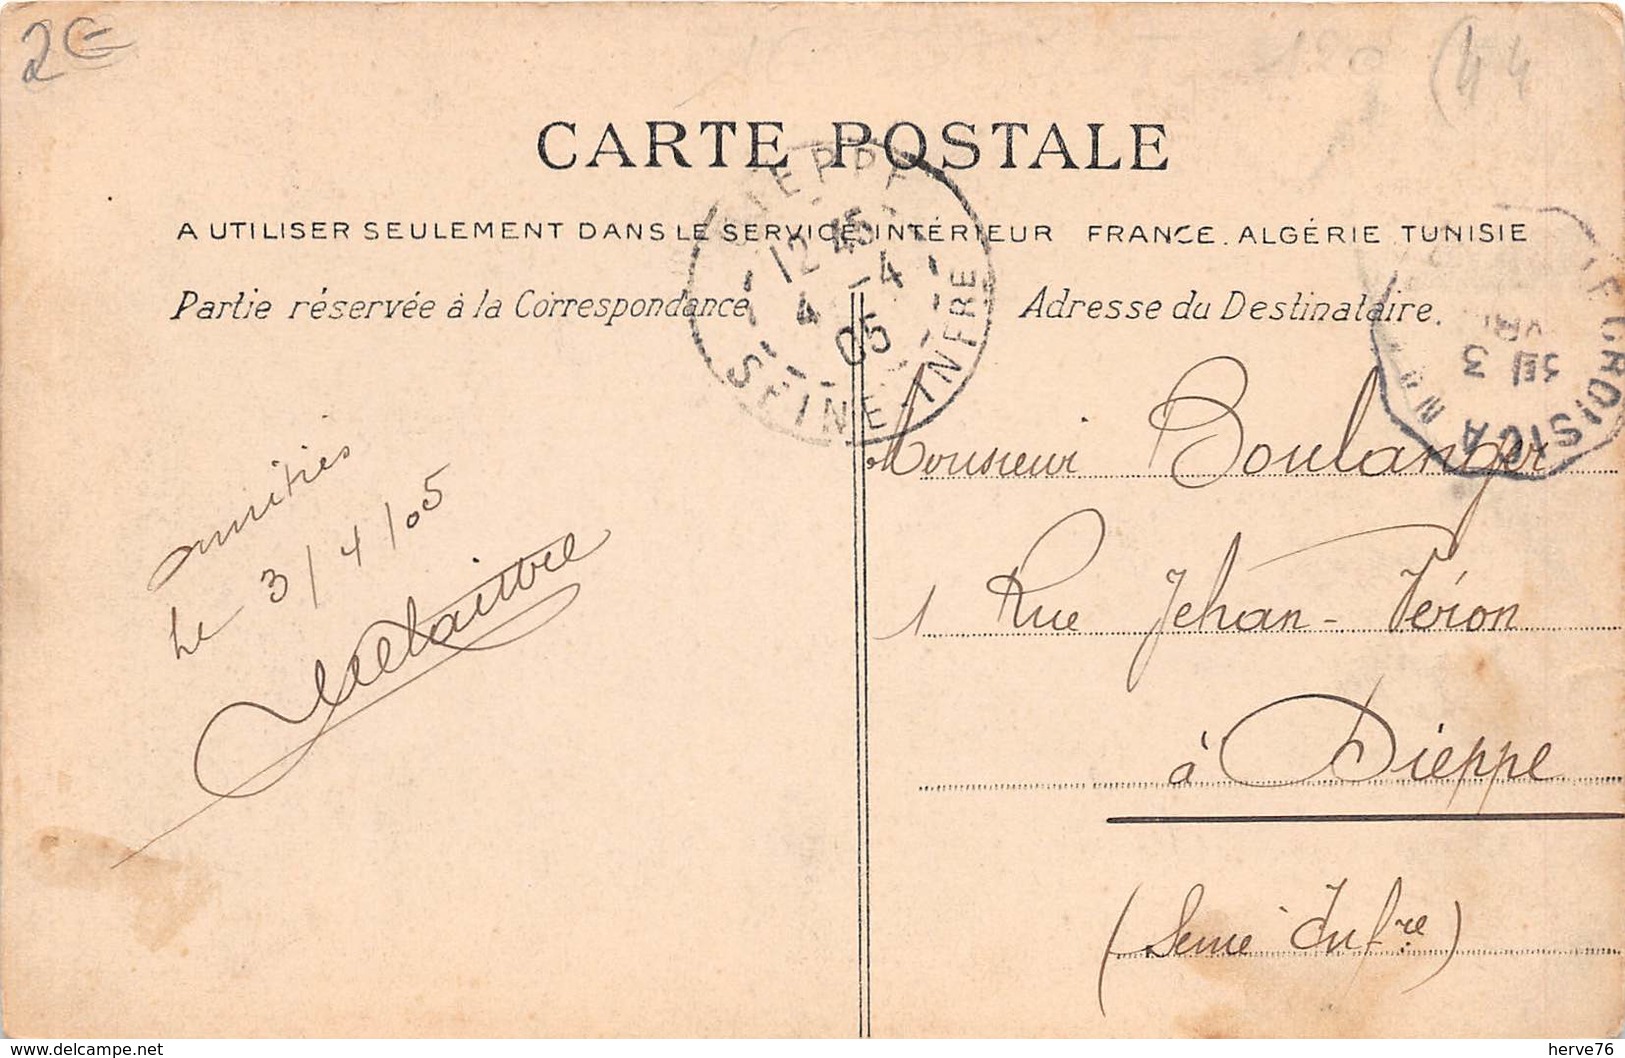 2€
(44
CARTE POSTALE
A UTILISER SEULEMENT DANS LE SERVICE INTÉRIEUR FRANCE. ALGÉRIE TUNISIE
Partie réservée à la Correspondance
Adresse du Destinataire.
DIEPPE
12 45
4 -4
05
SEINE-INFRE
LE CROISIC A N
3
amitiés
Le 3/4/05
Monsieur Boulanger
1 Rue Jehan-Véron
à Dieppe
(Seine Infre)
www.delcampe.net
herve76